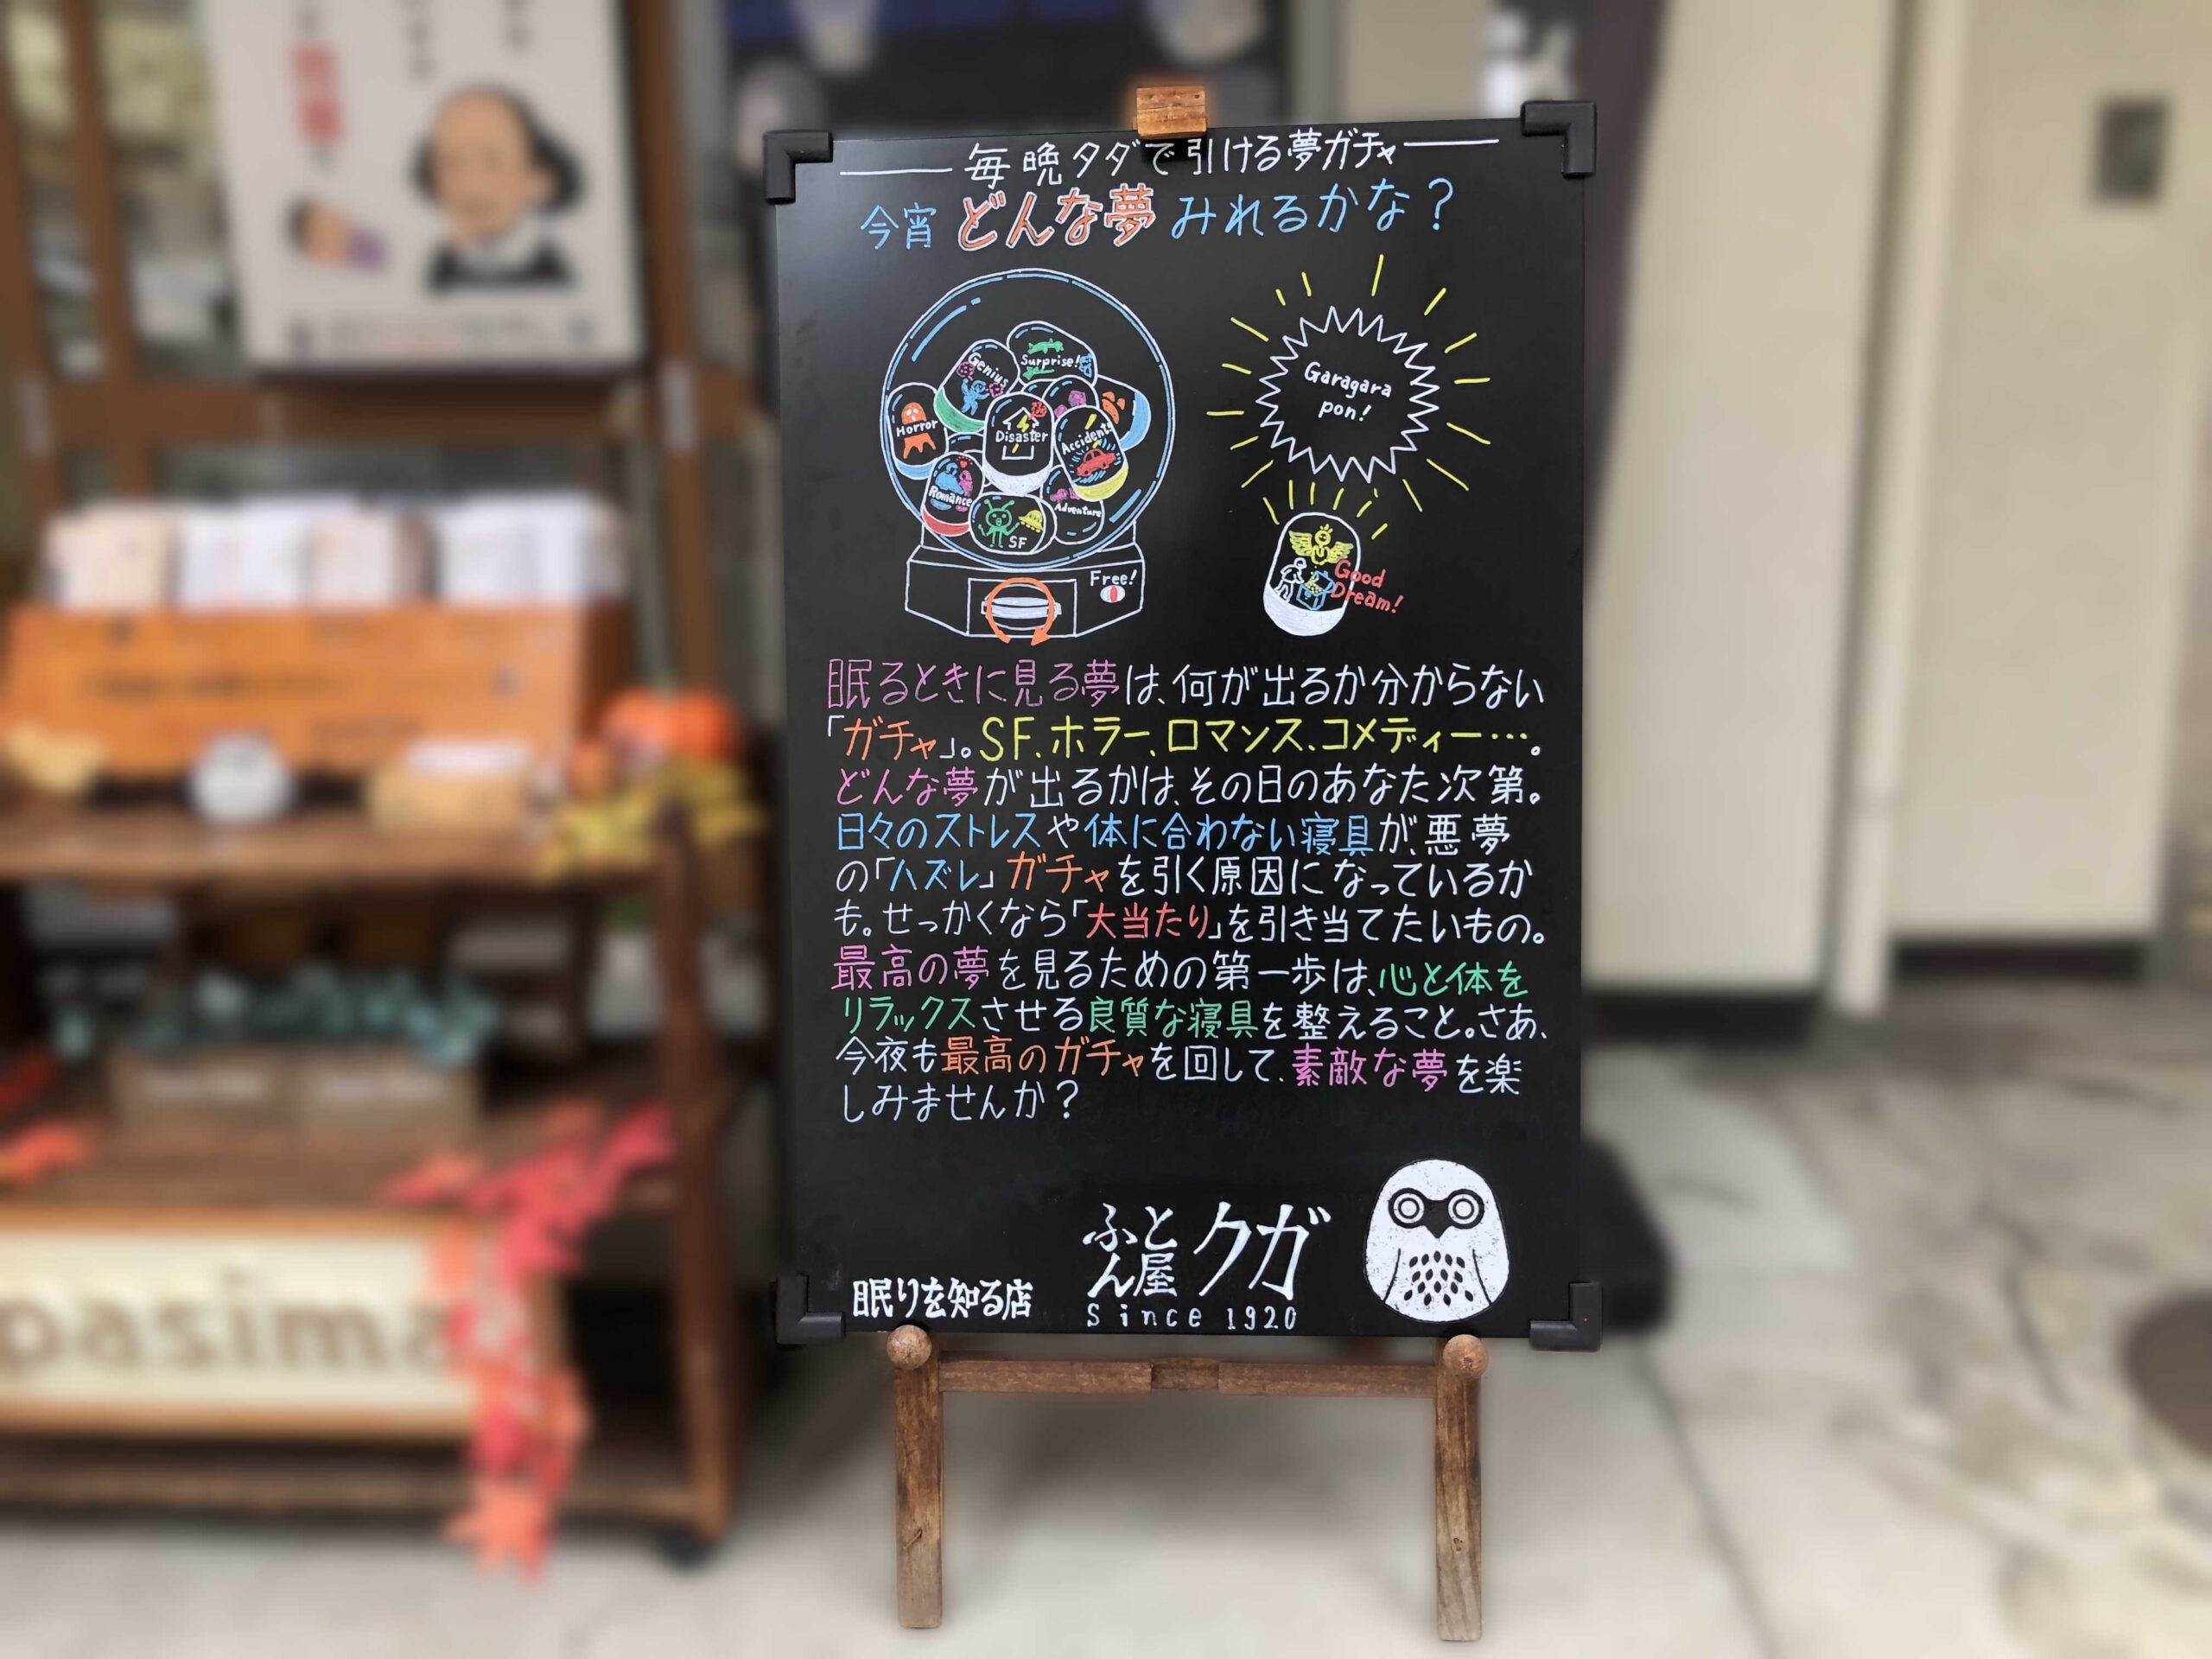 毎晩タダで引ける夢ガチャ
今宵どんな夢みれるかな？
Genius
Surprise!
Horror
Disaster
Accident
Romance
Adventure
SF
Free!
Garagara
pon!
Good
Dream!
眠るときに見る夢は、何が出るか分からない
「ガチャ」。SF、ホラー、ロマンス、コメディー…。
どんな夢が出るかは、その日のあなた次第。
日々のストレスや体に合わない寝具が、悪夢
の「ハズレ」ガチャを引く原因になっているか
も。せっかくなら「大当たり」を引き当てたいもの。
最高の夢を見るための第一歩は、心と体を
リラックスさせる良質な寝具を整えること。さあ、
今夜も最高のガチャを回して、素敵な夢を楽
しみませんか？
眠りを知る店
ふとん屋クガ
Since 1920
pasima